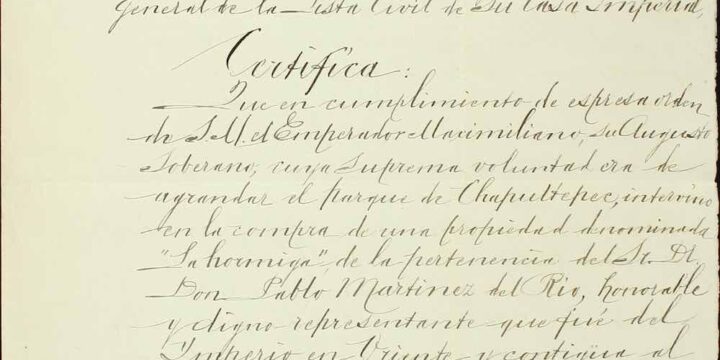 general de la Lista Civil de Su Casa Imperial,
Certifica:
Que en cumplimiento de expresa orden
de S.M. el Emperador Maximiliano, su Augusto
Soberano, cuya suprema voluntad era de
agrandar el parque de Chapultepec, intervino
en la compra de una propiedad denominada
"La hormiga", de la pertenencia del Sr. Dr.
Don Pablo Martinez del Rio, honorable
y digno representante que fué del
Imperio en Oriente y contigüa al